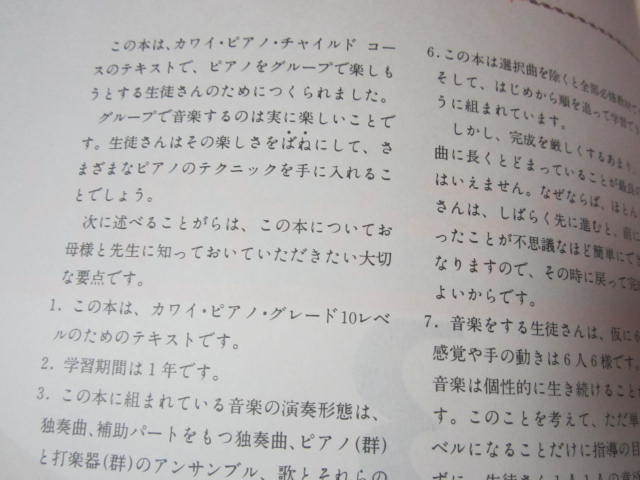 この本は、カワイ・ピアノ・チャイルド コー
スのテキストで、ピアノをグループで楽しも
うとする生徒さんのためにつくられました。
グループで音楽するのは実に楽しいことで
す。生徒さんはその楽しさをばねにして、さ
まざまなピアノのテクニックを手に入れるこ
とでしょう。
次に述べることがらは、この本についてお
母様と先生に知っておいていただきたい大切
な要点です。
1. この本は、カワイ・ピアノ・グレード10レベ
ルのためのテキストです。
2. 学習期間は1年です。
3. この本に組まれている音楽の演奏形態は、
独奏曲、補助パートをもつ独奏曲、ピアノ(群)
と打楽器(群)のアンサンブル、歌とそれらの
6. この本は選択曲を除くと全部必修
そして、はじめから順を追って学習
うに組まれています。
しかし、完成を厳しくするあまり、
曲に長くとどまっていることが最良
はいえません。なぜならば、ほとん
さんは、しばらく先に進むと、前に
ったことが不思議なほど簡単にで
なりますので、その時に戻って完
よいからです。
7. 音楽をする生徒さんは、仮に
感覚や手の動きは6人6様です。
音楽は個性的に生き続けること
す。このことを考えて、ただ単
ベルになることだけに指導の目
ずに、生徒さん1人1人の